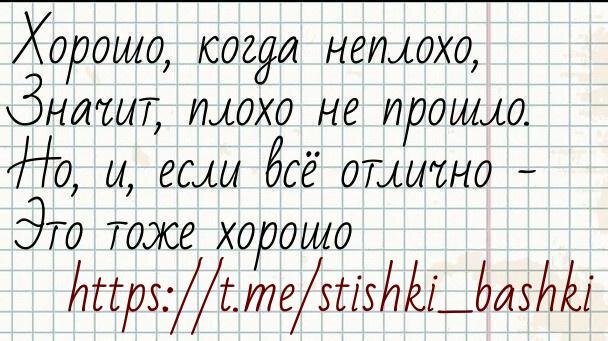 Хорошо, когда неплохо,
Значит, плохо не прошло.
Но, и, если всё отлично -
Это тоже хорошо
https://t.me/stishki_bashki